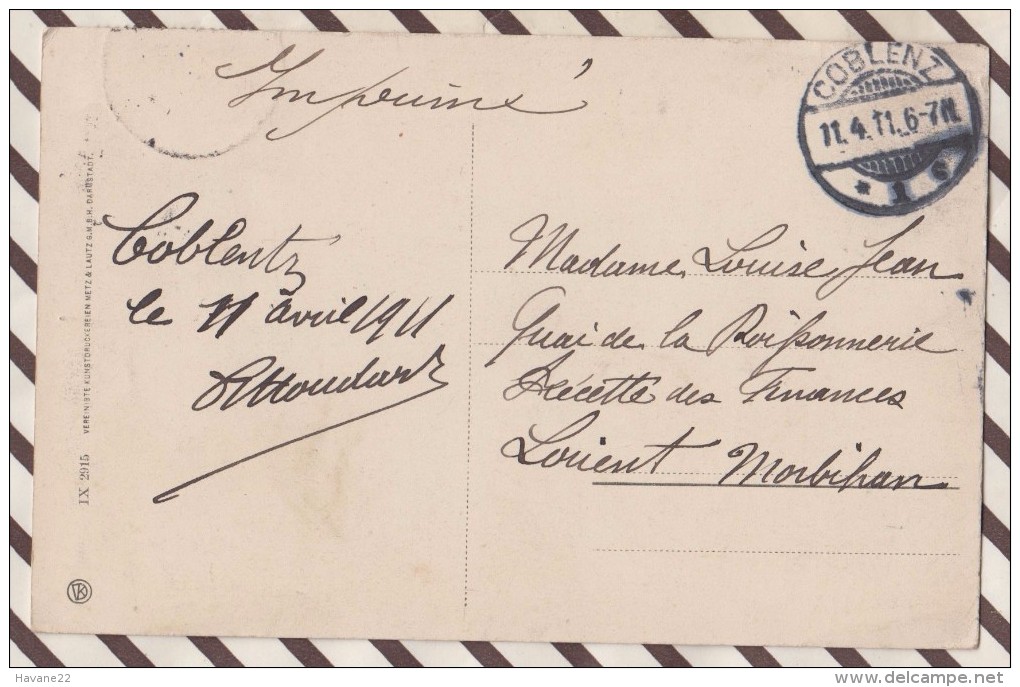 Imprimé
COBLENZ
11.4.11.6-7N.
* 1 c
Coblentz
le 11 avril 1911
Madame Louise Jean
Quai de la Poissonnerie
Récette des Finances
Lorient Morbihan
IX 2915 VEREINIGTE KUNSTDRUCKEREIEN METZ & LAUTZ G.M.B.H. DARMSTADT.
VK
Havane22